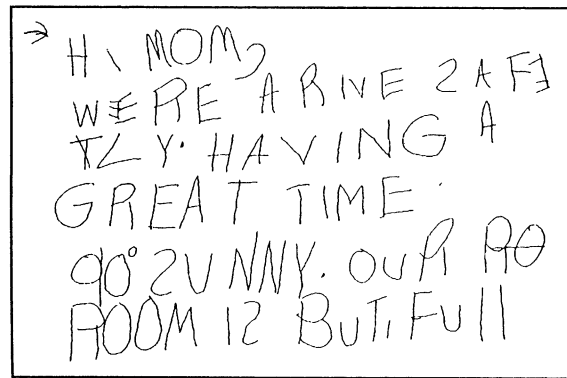 → HI MOM,
WERE ARIVE SAFE
TLY. HAVING A
GREAT TIME.
90° SUNNY. OUR RO
ROOM IS BUTIFUll